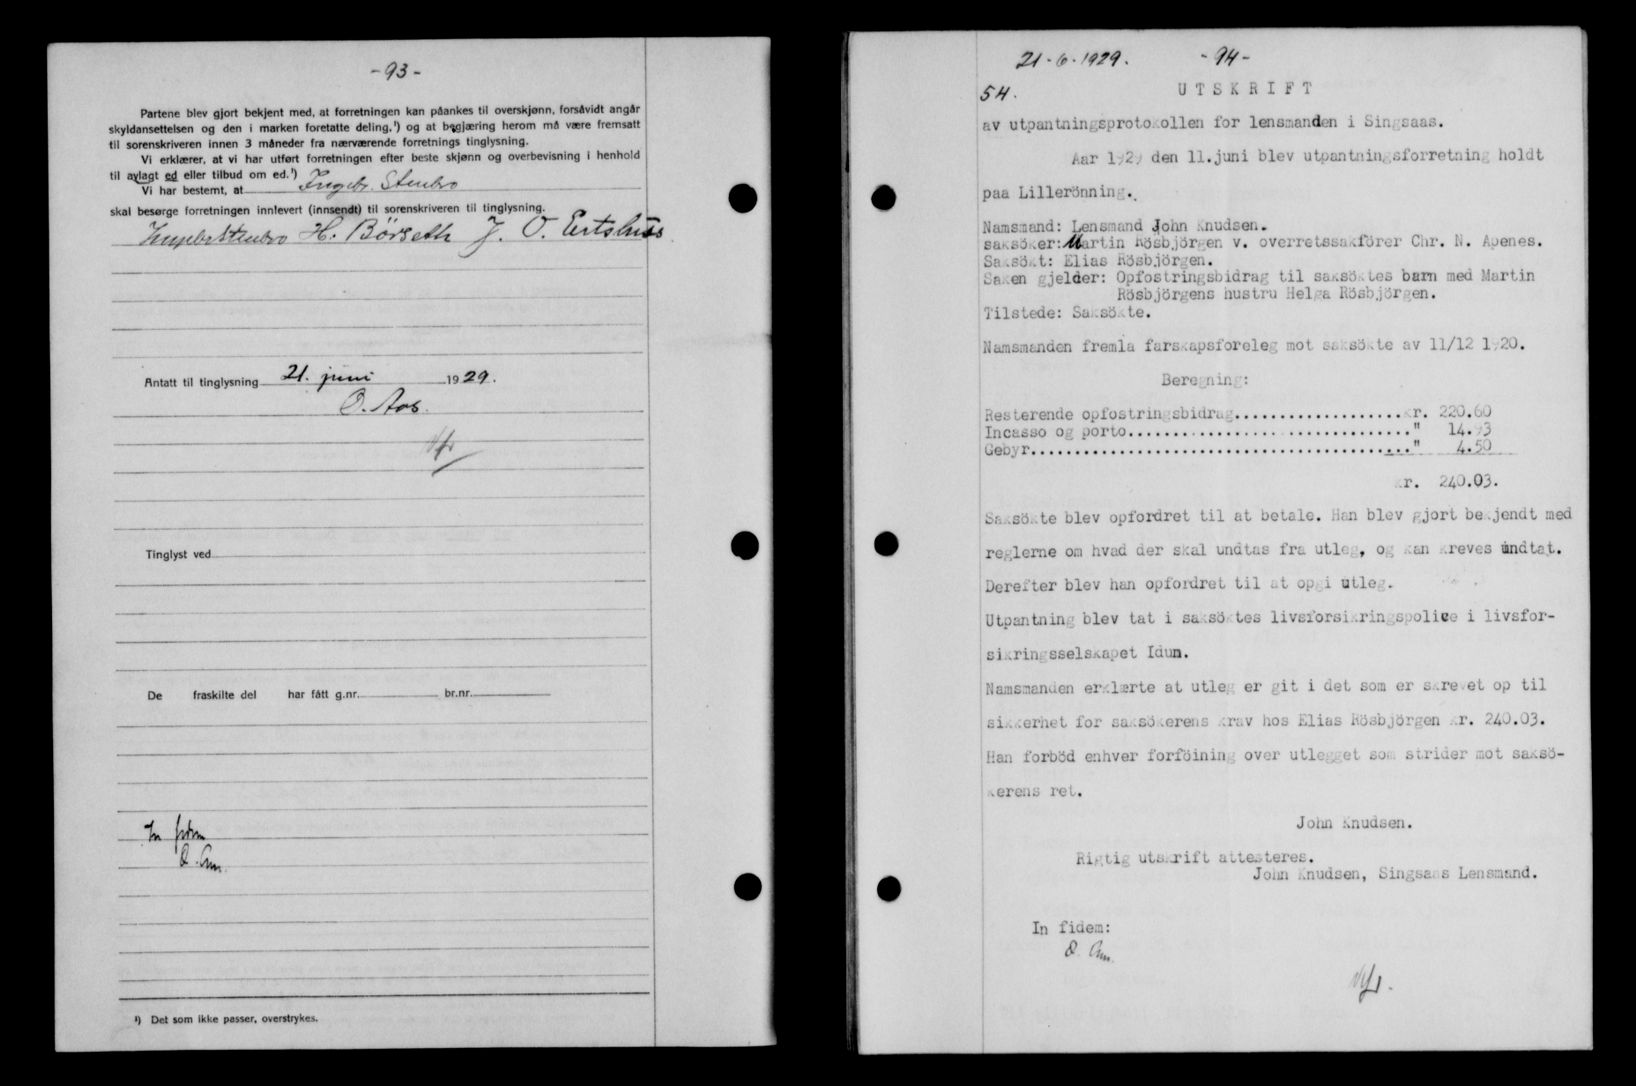 -93-
Partene blev gjort bekjent med, at forretningen kan påankes til overskjønn, forsåvidt angår
skyldansettelsen og den i marken foretatte deling,¹) og at begjæring herom må være fremsatt
til sorenskriveren innen 3 måneder fra nærværende forretnings tinglysning.
Vi erklærer, at vi har utført forretningen efter beste skjønn og overbevisning i henhold
til avlagt ed eller tilbud om ed.¹)
Vi har bestemt, at Ingebr. Stenbro
skal besørge forretningen innlevert (innsendt) til sorenskriveren til tinglysning.
Ingebr Stenbro H. Börseth J. O. Estshus
Antatt til tinglysning 21. juni 1929.
O. Aas.
Tinglyst ved
De fraskilte del har fått g.nr. br.nr.
In fidem
O. Aas.
¹) Det som ikke passer, overstrykes.
21-6-1929. -94-
54. UTSKRIFT
av utpantningsprotokollen for lensmanden i Singsaas.
Aar 1929 den 11.juni blev utpantningsforretning holdt
paa Lillerönning.
Namsmand: Lensmand John Knudsen.
saksöker: Martin Rösbjörgen v. overretssakförer Chr. N. Apenes.
Saksökt: Elias Rösbjörgen.
Saken gjelder: Opfostringsbidrag til saksöktes barn med Martin
Rösbjörgens hustru Helga Rösbjörgen.
Tilstede: Saksökte.
Namsmanden fremla farskapsforeleg mot saksökte av 11/12 1920.
Beregning:
Resterende opfostringsbidrag...................kr. 220.60
Incasso og porto................................" 14.93
Gebyr..........................................." 4.50
kr. 240.03.
Saksökte blev opfordret til at betale. Han blev gjort bekjendt med
reglerne om hvad der skal undtas fra utleg, og kan kreves undtat.
Derefter blev han opfordret til at opgi utleg.
Utpantning blev tat i saksöktes livsforsikringspolice i livsfor-
sikringsselskapet Idun.
Namsmanden erklærte at utleg er git i det som er skrevet op til
sikkerhet for saksökerens krav hos Elias Rösbjörgen kr. 240.03.
Han forböd enhver forföining over utlegget som strider mot saksö-
kerens ret.
John Knudsen.
Rigtig utskrift attesteres.
John Knudsen, Singsaas Lensmand.
In fidem:
O. Aas.